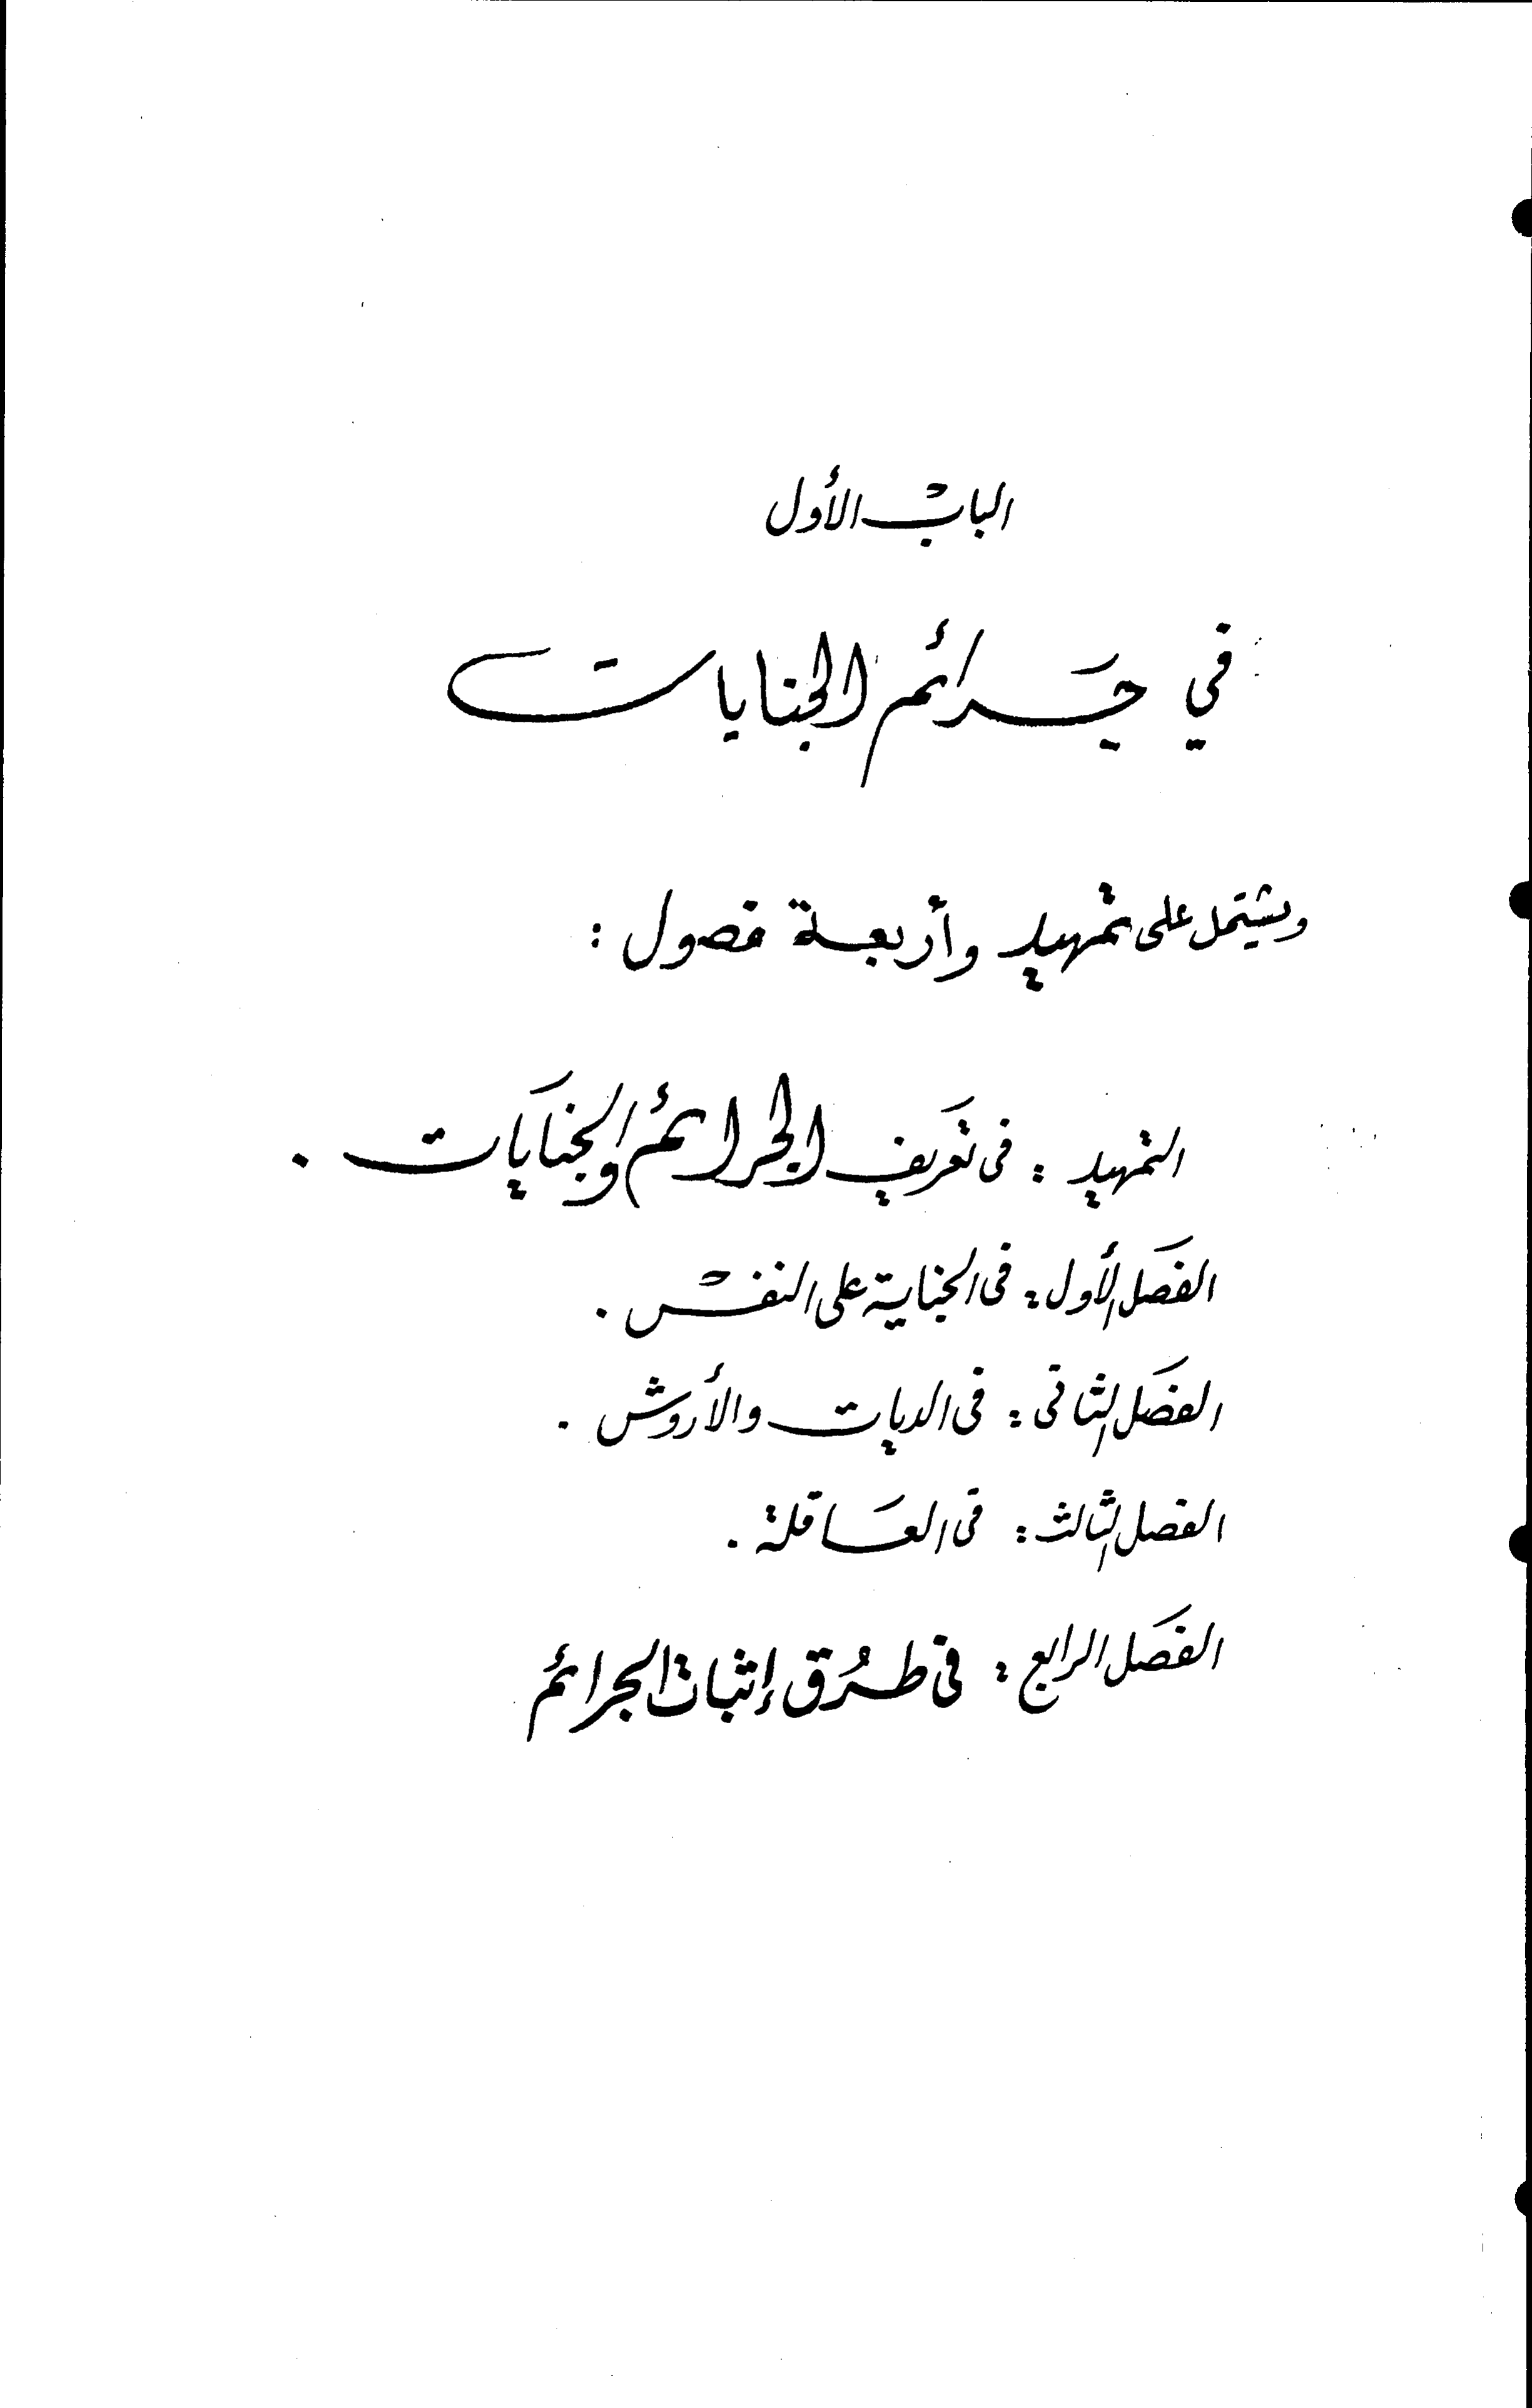 الباب الأول
في جرائم الجنايات
ويشتمل على تمهيد وأربعة فصول :
التمهيد : في تعريف الجرائم والجنايات .
الفصل الأول : في الجناية على النفس .
الفصل الثاني : في الديات والأروش .
الفصل الثالث : في العاقلة .
الفصل الرابع : في طرق إثبات الجرائم